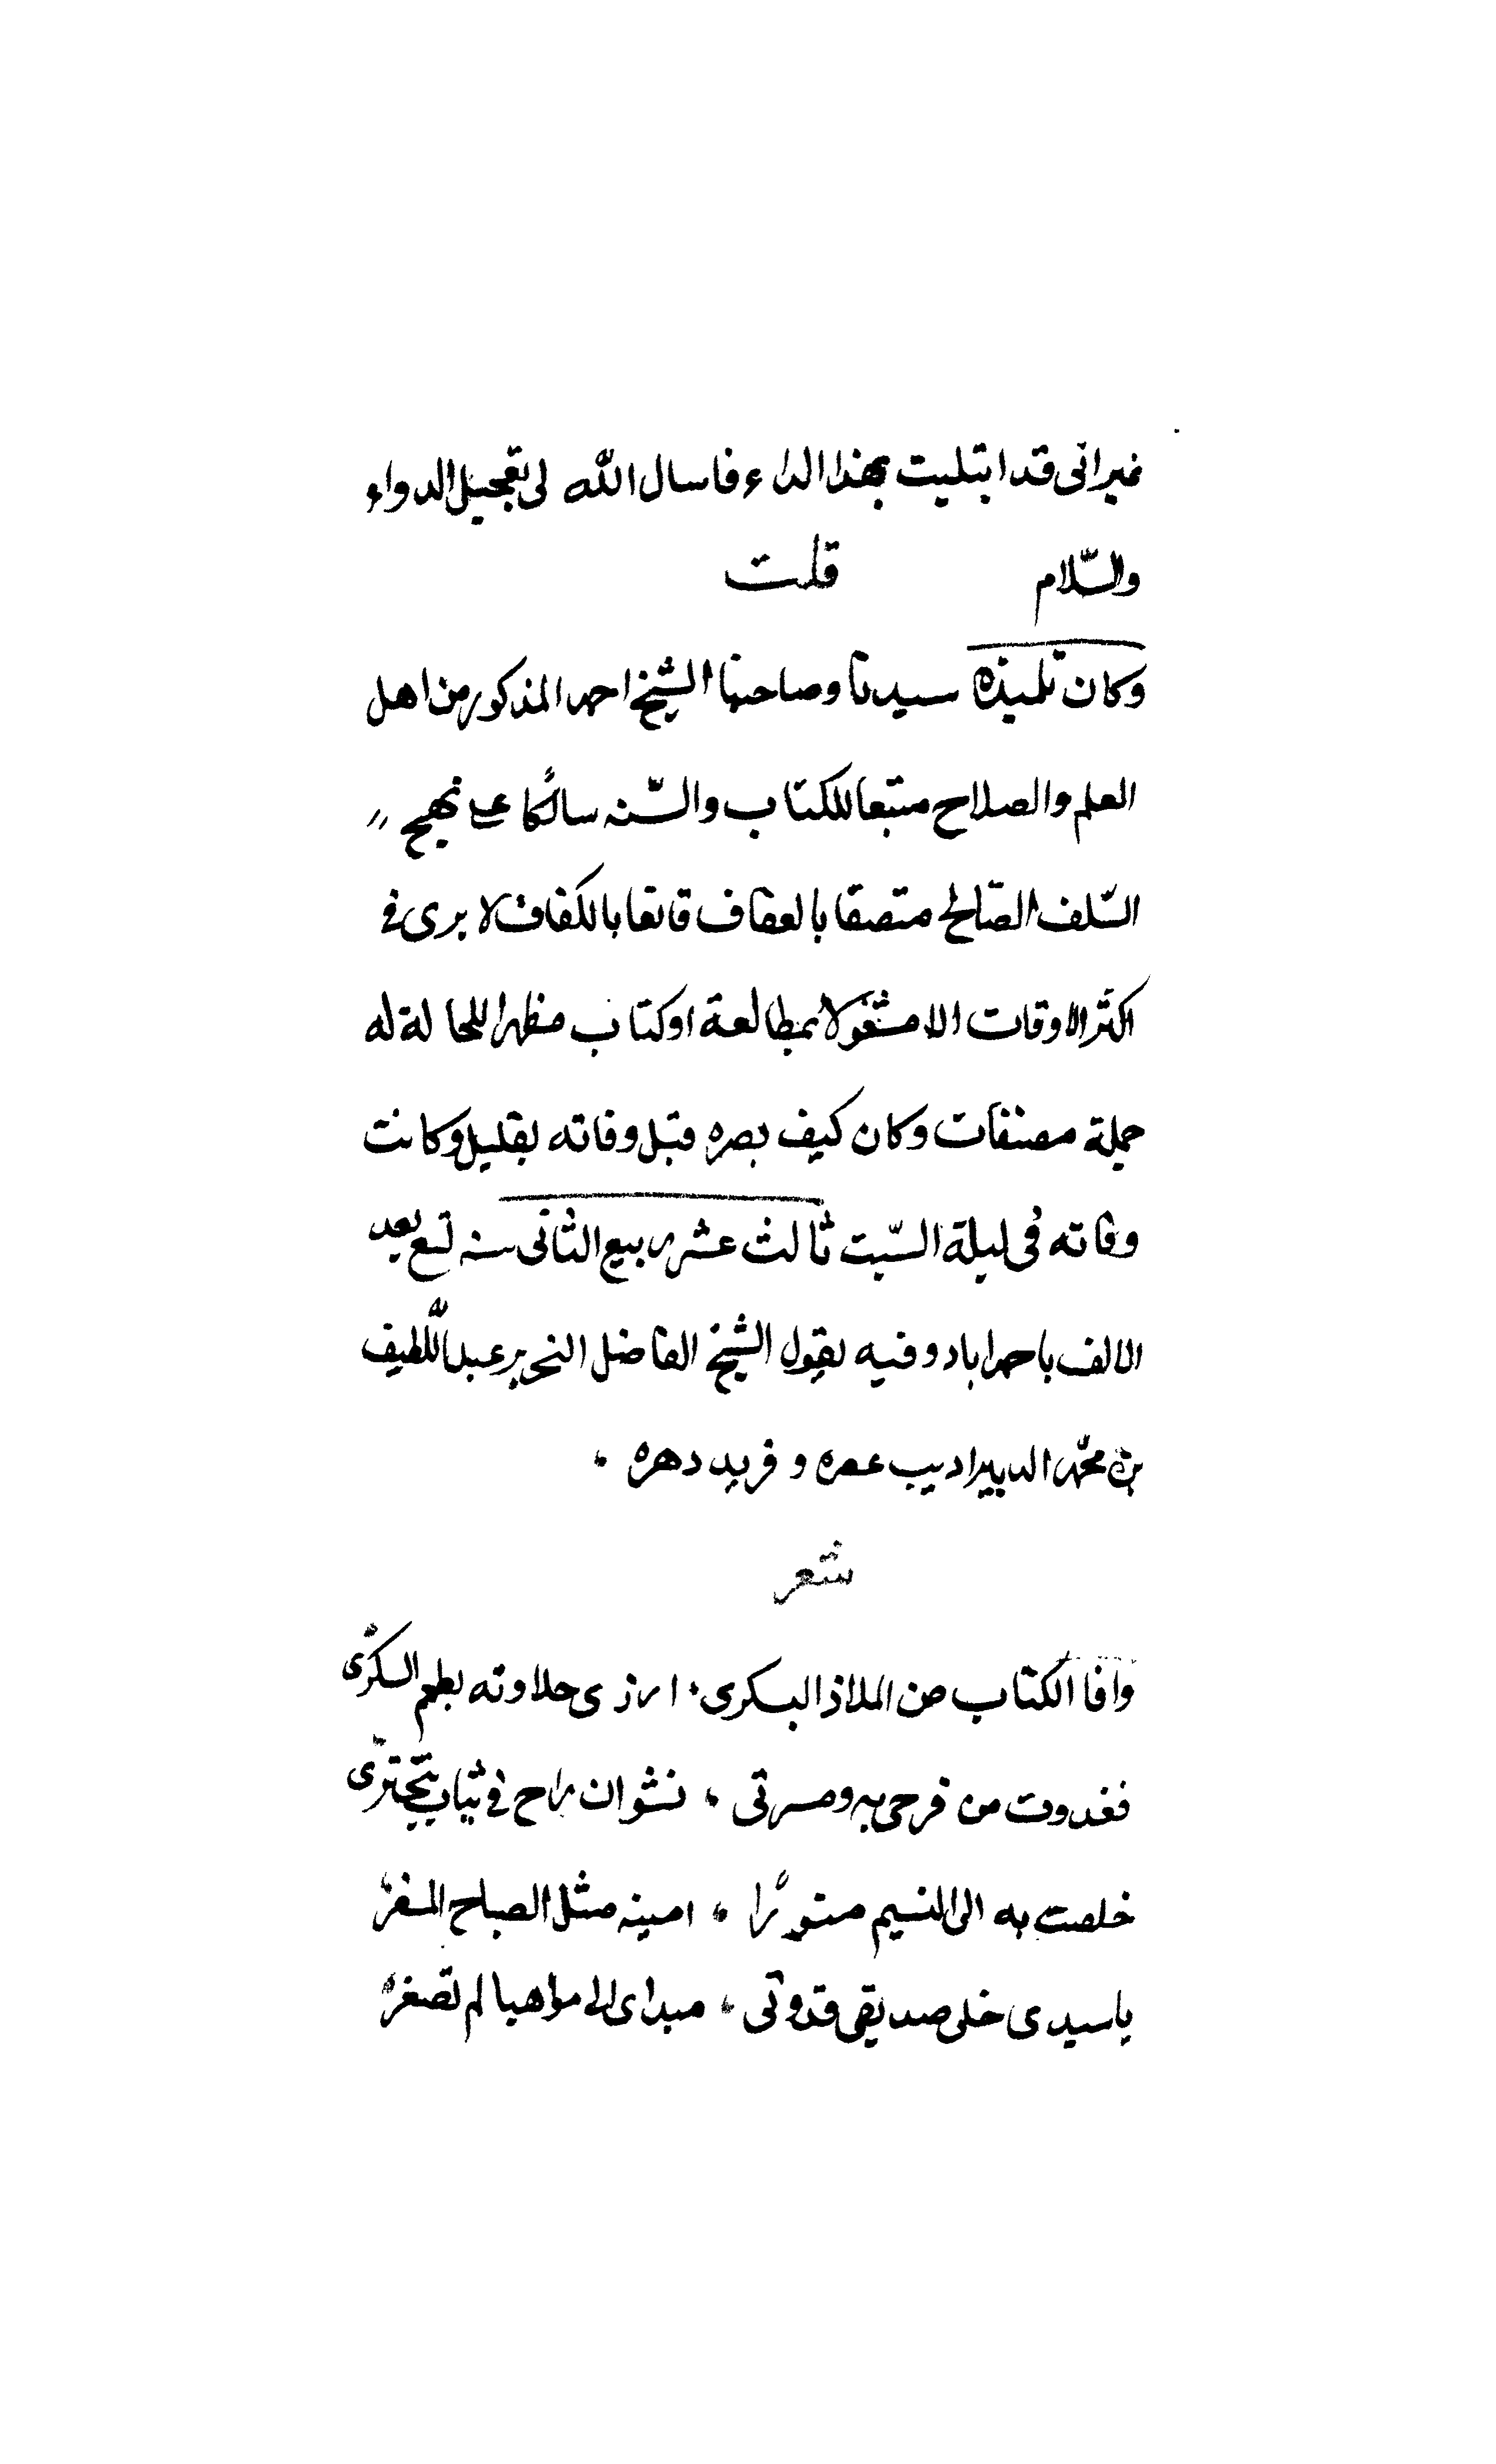 غيراني قد ابتليت بهذا الداء فاسال الله لى تعجيل الدواء
والسّلام قلت
وكان تلميذه سيدنا وصاحبنا الشيخ احمد المذكور من اهل
العلم والصلاح متبعا للكتاب والسّنه سالكًا على نهج
السّلف الصّالح متصفا بالعفاف قانعا بالكفاف لا يرى في
اكثر الاوقات الا مشغولا بمطالعة او كتاب مظهرا للحالة له
جملة مصنفات وكان كيف بصره قبل وفاته بقليل وكانت
وفاته في ليلة السّبت ثالث عشر ربيع الثانى سنه تسع بعد
الالف باحمداباد وفيه يقول الشيخ الفاضل النحرير عبد اللّطيف
بن محمّد الدبير اديب عصره و فريد دهره
شعر
وافا الكتاب من الملاذ البسكرى ازرى حلاوته بطعم السكرّى
فغدوت من فرحى به ومسرتى نشوان راح في ثياب تبخترّى
خلصت به الى النسيم منورًا امينه مثل الصباح المسفر
ياسيدى خلى صديقى قدوتى مبداى الى مواهبا لم تصغر